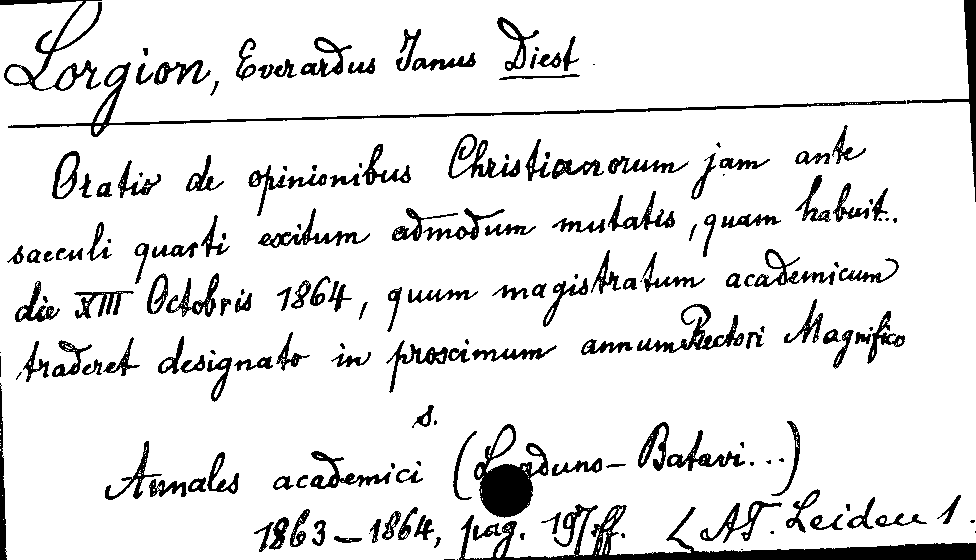 Lorgion, Everardus Janus Diest
Oratio de opinionibus Christianorum jam ante
saeculi quarti exitum admodum mutatis, quam habuit.
die XIII Octobris 1864, quum magistratum academicum
traderet designato in proximum annum Rectori Magnifico
s.
Annales academici (Lugduno-Batavi...)
1863-1864, pag. 197ff. < AT. Leiden 1.